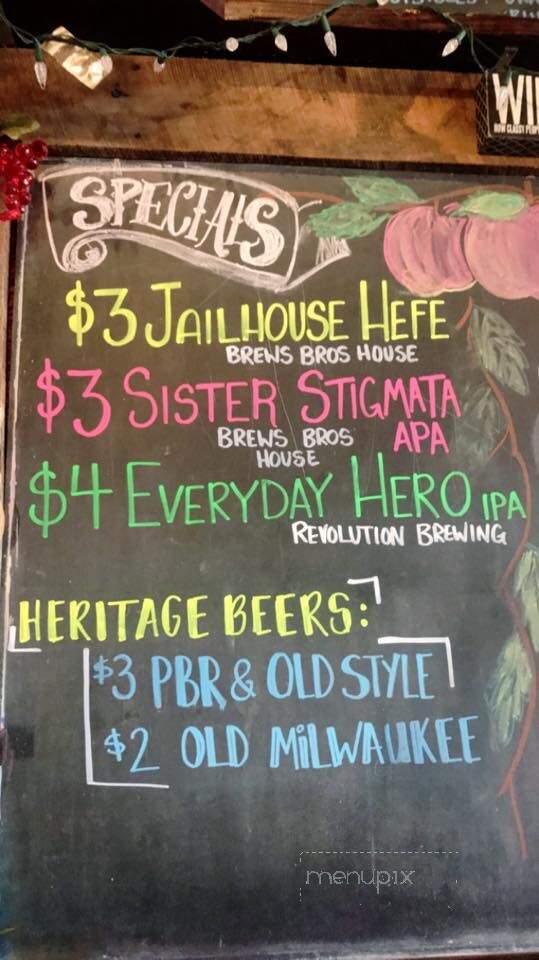 WI
HOW CLASSY PEOPL
SPECIALS
$3 JAILHOUSE HEFE
BREWS BROS HOUSE
$3 SISTER STIGMATA
APA
BREWS BROS
HOUSE
$4 EVERYDAY HERO IPA
REVOLUTION BREWING
HERITAGE BEERS:
$3 PBR & OLD STYLE
$2 OLD MILWAUKEE
menupix